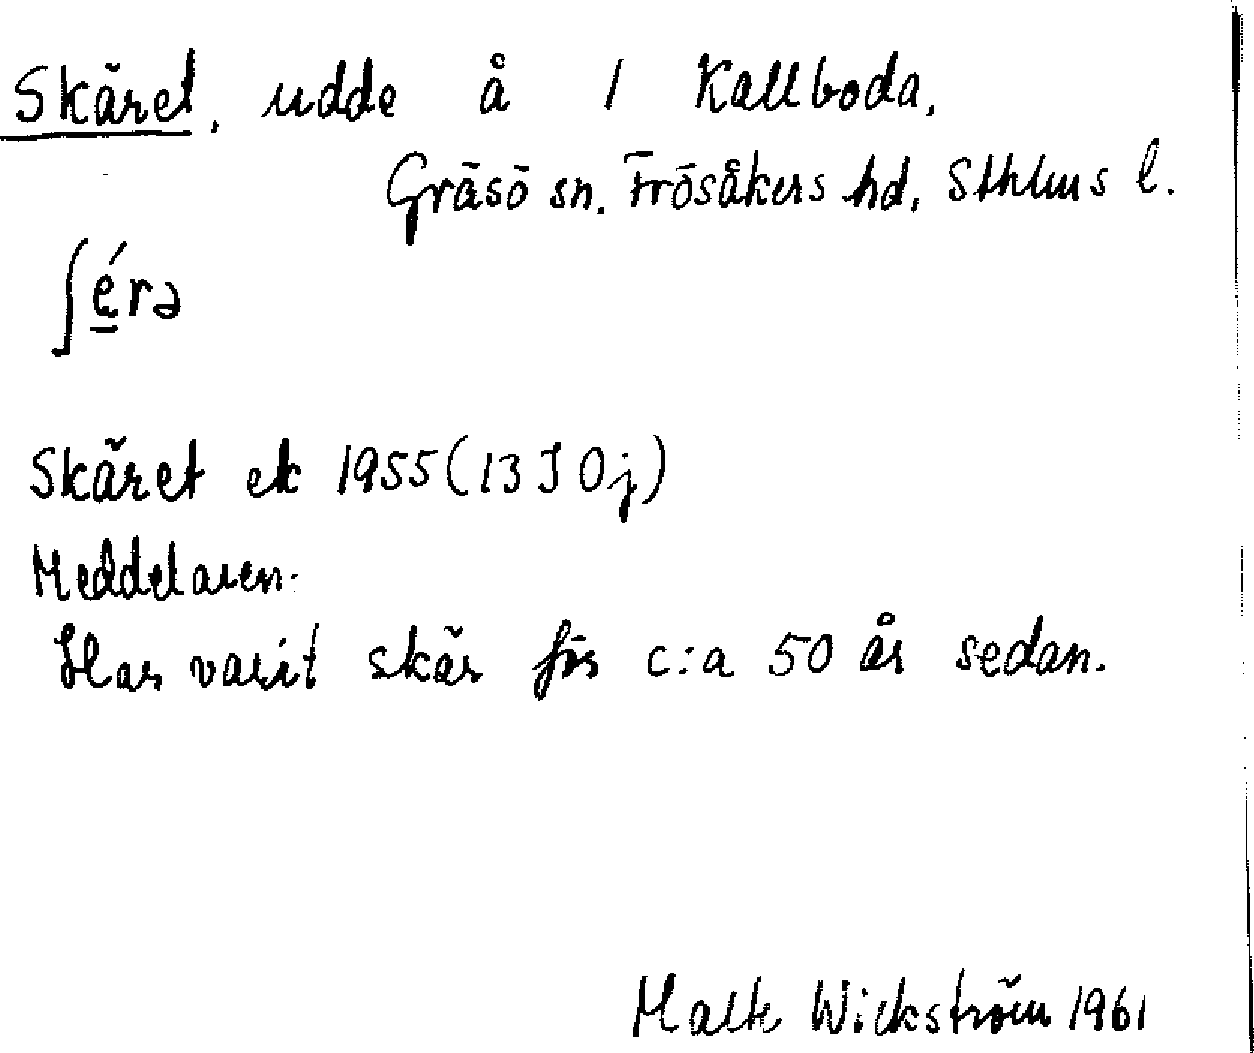 Skäret, udde å 1 Kallboda,
Gräsö sn. Frösåkers hd, Sthlms l.
ʃé̠rə
Skäret ek 1955 (13 J 0j)
Meddelaren.
Har varit skär för c:a 50 år sedan.
Malte Wickström 1961